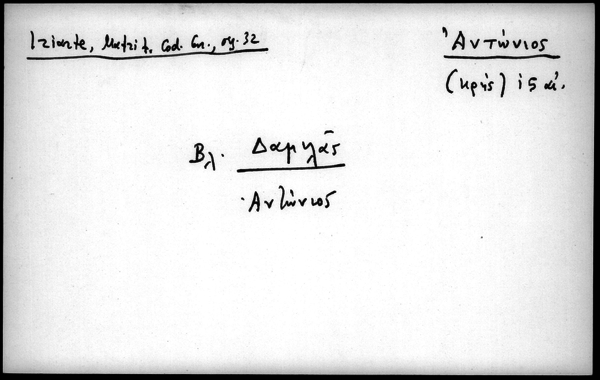 Iriarte, Matrit. Cod. Gr., σγ. 32
Ἀντώνιος
(κρής) ις αἰ.
Βλ. Δαμιλᾶς
Ἀντώνιος